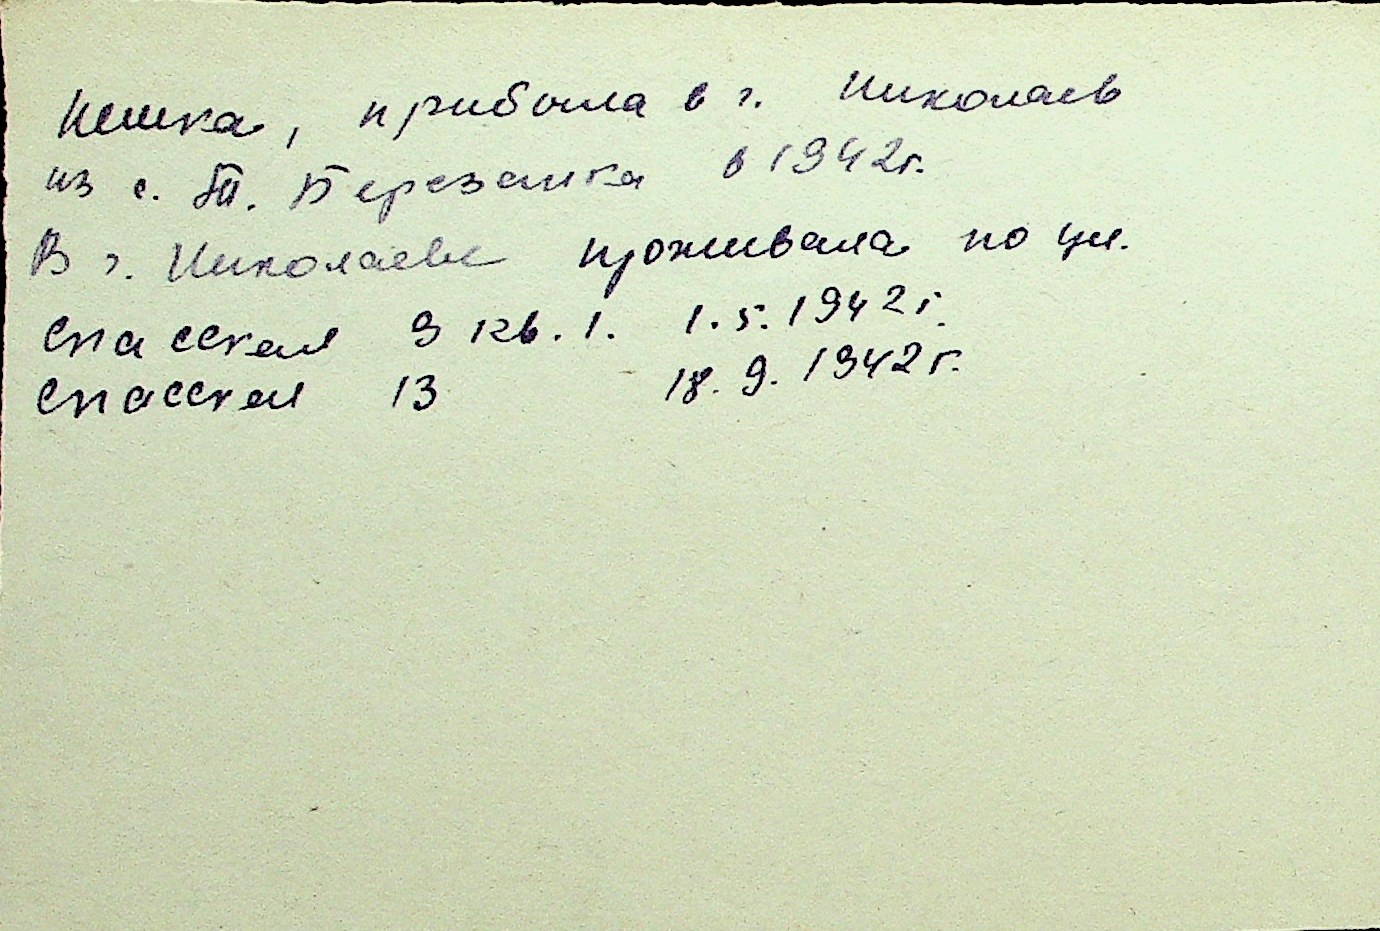 Немка, прибыла в г. Николаев
из с. Т. Березанка в 1942г.
В г. Николаеве проживала по ул.
Спасская 9 кв. 1. 1.5.1942г.
Спасская 13 18.9.1942г.